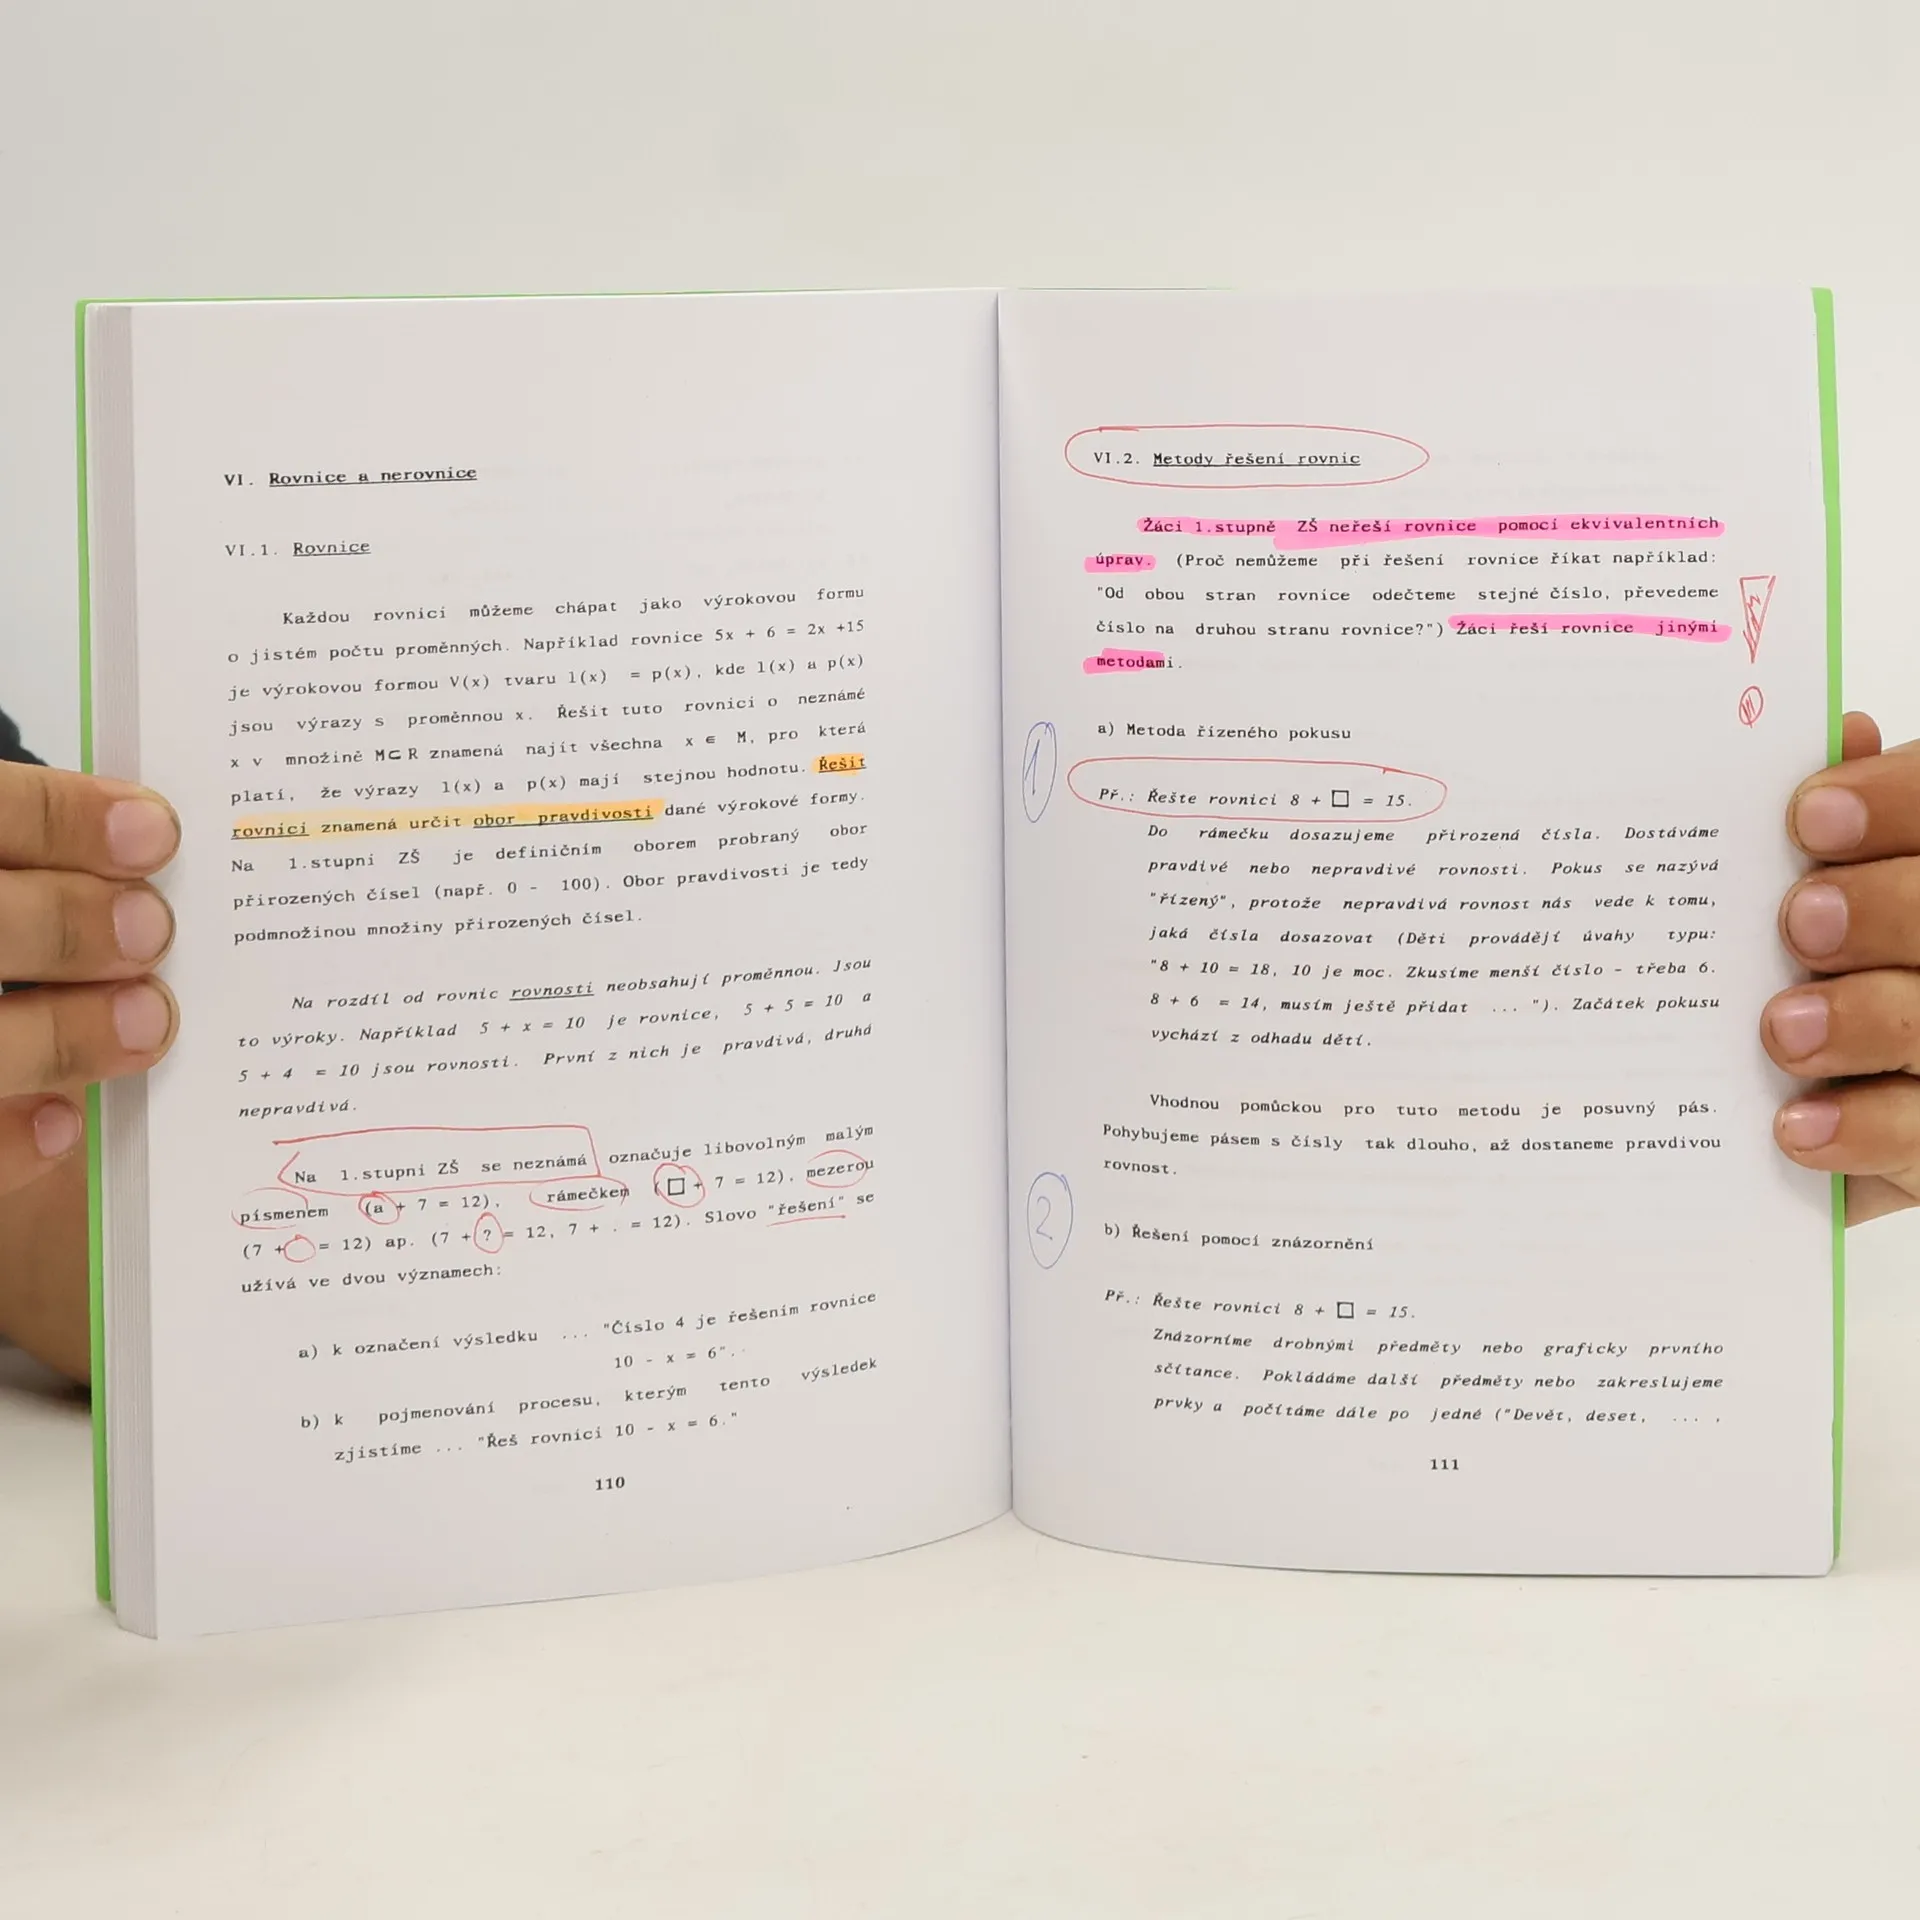 VI. Rovnice a nerovnice
VI.1. Rovnice
Každou rovnici můžeme chápat jako výrokovou formu
o jistém počtu proměnných. Například rovnice 5x + 6 = 2x +15
je výrokovou formou V(x) tvaru l(x) = p(x), kde l(x) a p(x)
jsou výrazy s proměnnou x. Řešit tuto rovnici o neznámé
x v množině M⊂R znamená najít všechna x ∈ M, pro která
platí, že výrazy l(x) a p(x) mají stejnou hodnotu. Řešit
rovnici znamená určit obor pravdivosti dané výrokové formy.
Na 1.stupni ZŠ je definičním oborem probraný obor
přirozených čísel (např. 0 - 100). Obor pravdivosti je tedy
podmnožinou množiny přirozených čísel.
Na rozdíl od rovnic rovnosti neobsahují proměnnou. Jsou
to výroky. Například 5 + x = 10 je rovnice, 5 + 5 = 10 a
5 + 4 = 10 jsou rovnosti. První z nich je pravdivá, druhá
nepravdivá.
Na 1.stupni ZŠ se neznámá označuje libovolným malým
písmenem (a + 7 = 12), rámečkem (□ + 7 = 12), mezerou
(7 + = 12) ap. (7 + ? = 12, 7 + . = 12). Slovo "řešení" se
užívá ve dvou významech:
a) k označení výsledku ... "Číslo 4 je řešením rovnice
10 - x = 6".
b) k pojmenování procesu, kterým tento výsledek
zjistíme ... "Řeš rovnici 10 - x = 6."
110
VI.2. Metody řešení rovnic
Žáci 1.stupně ZŠ neřeší rovnice pomocí ekvivalentních
úprav. (Proč nemůžeme při řešení rovnice říkat například:
"Od obou stran rovnice odečteme stejné číslo, převedeme
číslo na druhou stranu rovnice?") Žáci řeší rovnice jinými
metodami.
1
a) Metoda řízeného pokusu
Př.: Řešte rovnici 8 + □ = 15.
Do rámečku dosazujeme přirozená čísla. Dostáváme
pravdivé nebo nepravdivé rovnosti. Pokus se nazývá
"řízený", protože nepravdivá rovnost nás vede k tomu,
jaká čísla dosazovat (Děti provádějí úvahy typu:
"8 + 10 = 18, 10 je moc. Zkusíme menší číslo - třeba 6.
8 + 6 = 14, musím ještě přidat ... "). Začátek pokusu
vychází z odhadu dětí.
Vhodnou pomůckou pro tuto metodu je posuvný pás.
Pohybujeme pásem s čísly tak dlouho, až dostaneme pravdivou
rovnost.
2
b) Řešení pomocí znázornění
Př.: Řešte rovnici 8 + □ = 15.
Znázorníme drobnými předměty nebo graficky prvního
sčítance. Pokládáme další předměty nebo zakreslujeme
prvky a počítáme dále po jedné ("Devět, deset, ... ,
111